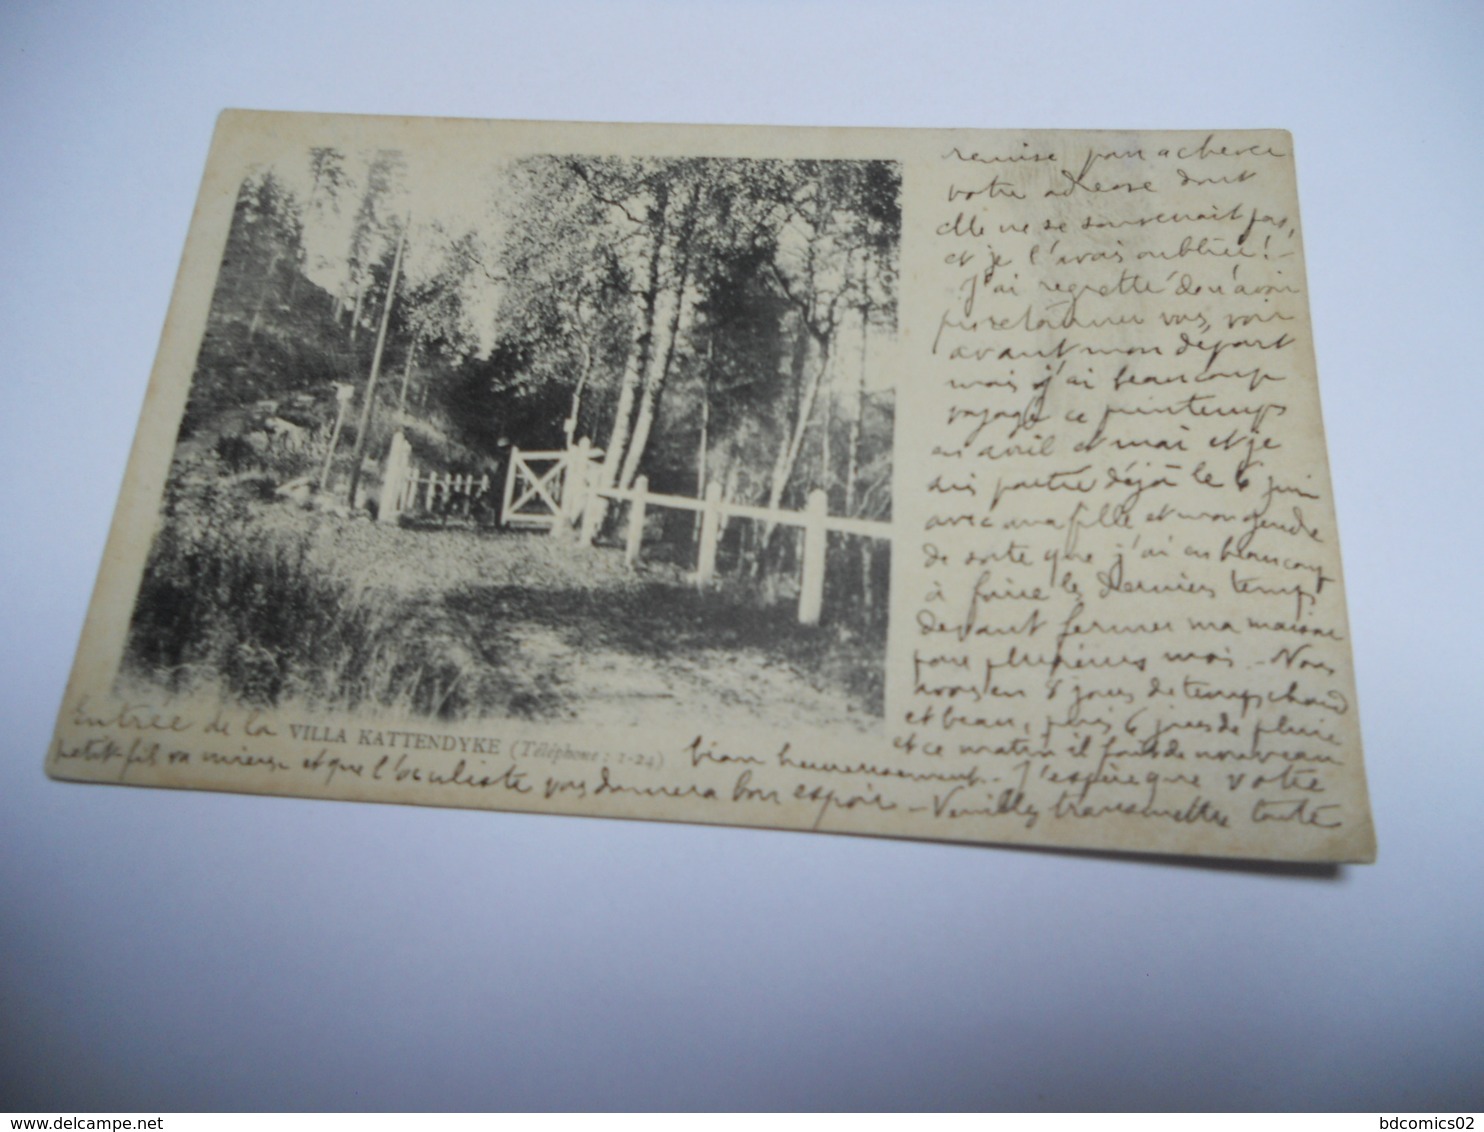 remise pour achever
votre adresse dont
elle ne se souvenait pas,
et je l'avais oubliée! -
J'ai regretté de n'avoir
pu retourner vous voir
avant mon départ
mais j'ai beaucoup
voyagé ce printemps
en avril et mai et je
suis partie déjà le 6 juin
avec ma fille et mon gendre
de sorte que j'ai eu beaucoup
à faire les derniers temps
devant fermer ma maison
pour plusieurs mois - Nous
avons eu 8 jours de temps chaud
et beau, puis 6 jours de pluie
et ce matin il fait de nouveau
bien heureusement. J'espère que votre
petit fils va mieux et que l'oculiste vous donnera bon espoir - Veuillez transmettre toute
Entrée de la VILLA KATTENDYKE (Téléphone : 1-24)
bdcomics02